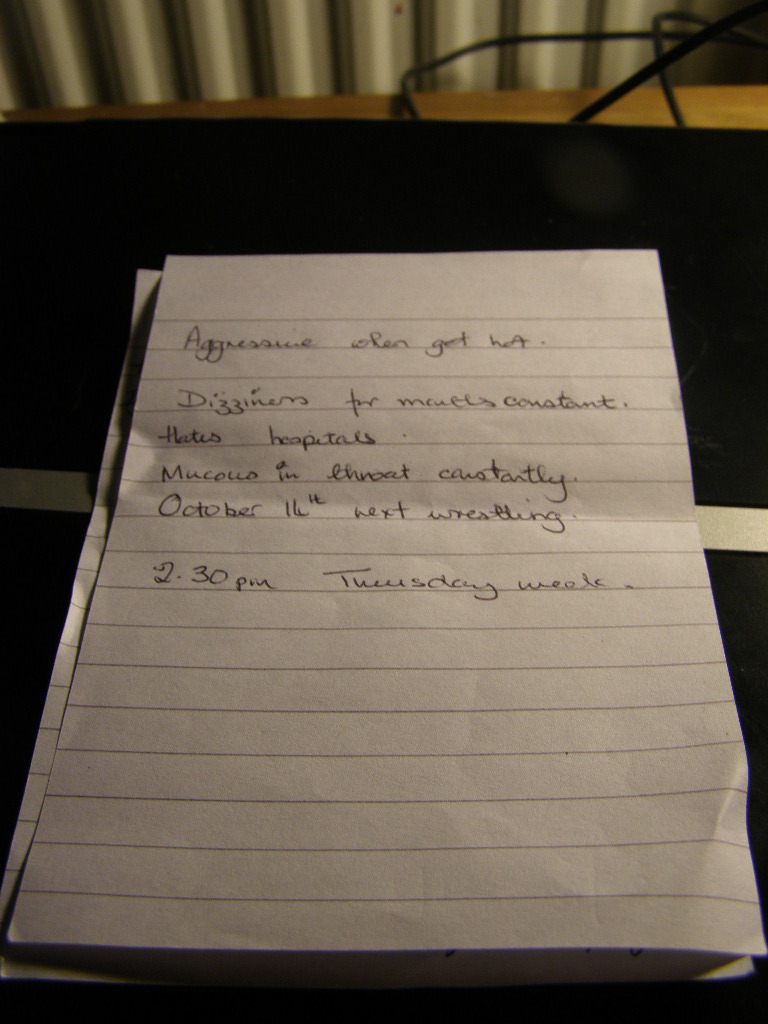 Aggressive when get hot.
Dizziness for months constant.
Hates hospitals.
Mucous in throat constantly.
October 14th next wrestling.
2.30pm week.